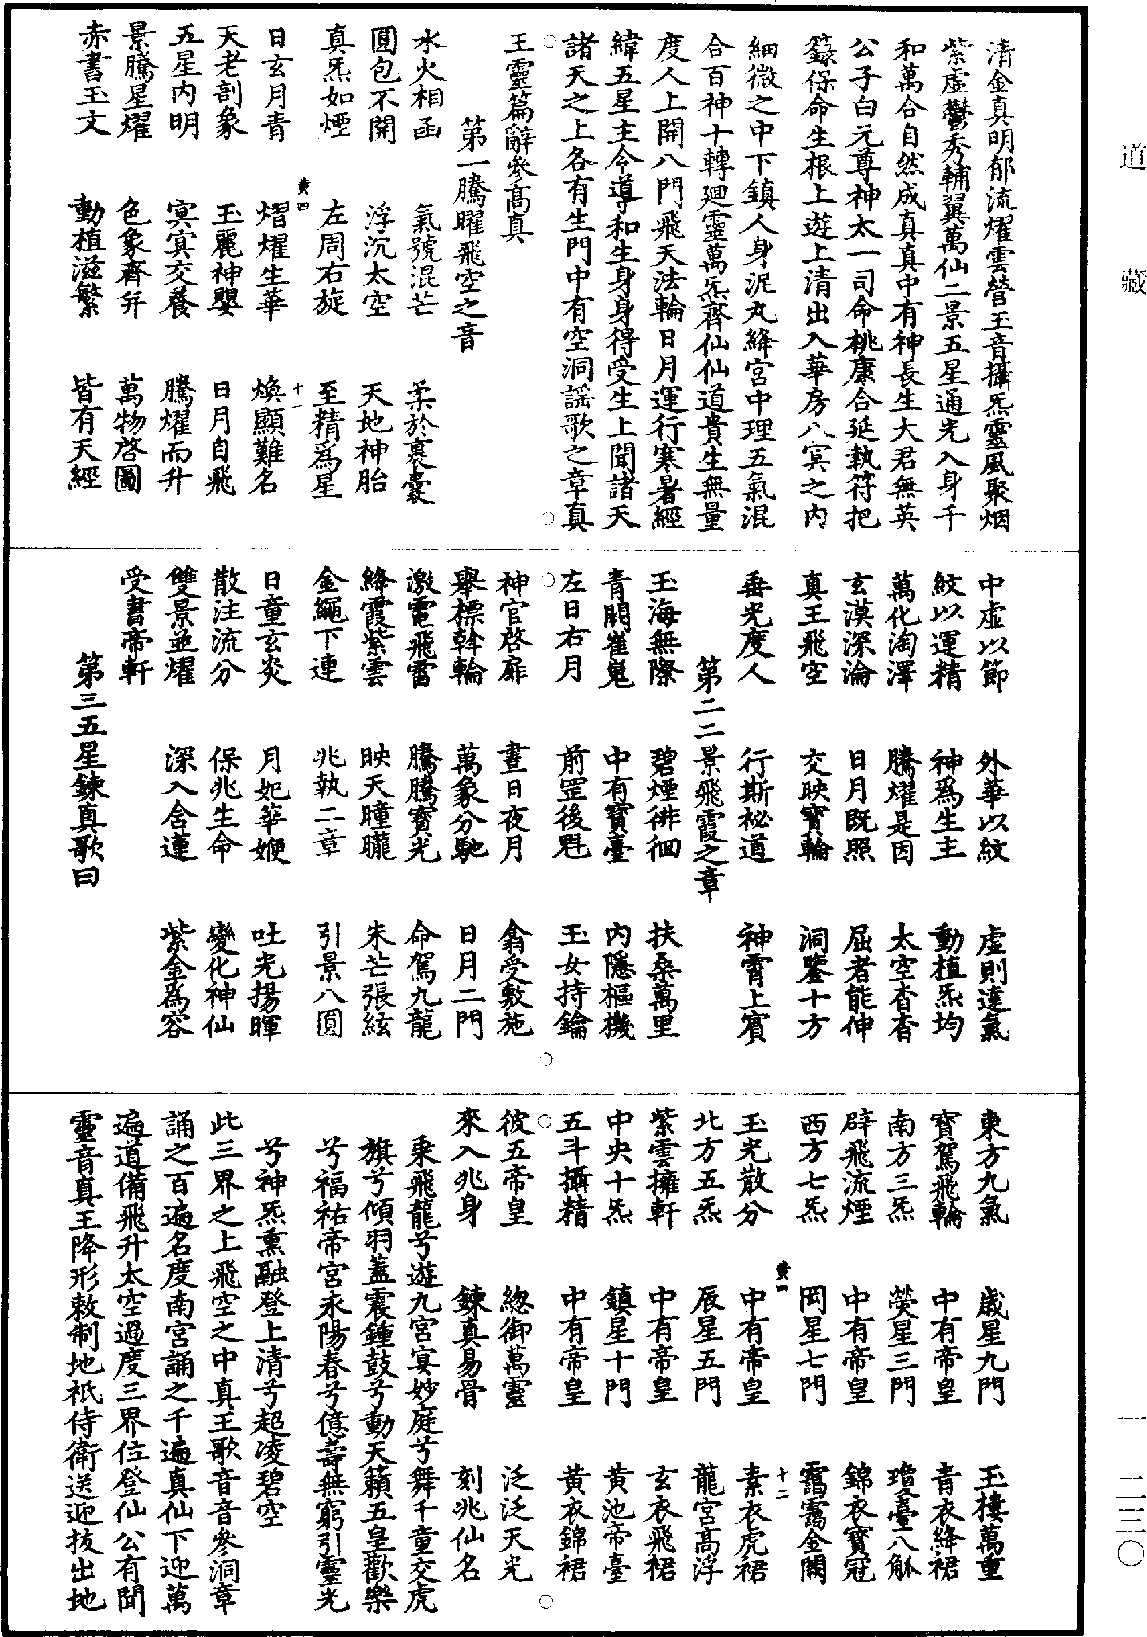 道藏
一一二三〇
清金真明郁流燿雲營玉音攝炁靈風聚烟
紫虛鬱秀輔翼萬仙二景五星通光入身千
和萬合自然成真真中有神長生大君無英
公子白元尊神太一司命桃康合延執符把
籙保命生根上遊上清出入華房八冥之内
細微之中下鎮人身泥丸絳宮中理五氣混
合百神十轉迴靈萬炁齊仙仙道貴生無量
度人上開八門飛天法輪日月運行寒暑經
緯五星主令導和生身身得受生上聞諸天
諸天之上各有生門中有空洞謡歌之章真
王靈篇辭參高真
第一騰曜飛空之音
水火相函　氣號混芒　柔於裹囊
圓包不開　浮沉太空　天地神胎
真炁如煙　左周右旋　至精爲星
黄四　十一
日玄月青　熠燿生華　煥顯難名
天老剖象　玉麗神嬰　日月自飛
五星内明　㝠㝠交養　騰燿而升
景騰星燿　色象齊并　萬物啓圖
赤書玉文　動植滋繁　皆有天經
中虛以節　外華以紋　虛則達氣
紋以運精　神爲生主　動植炁均
萬化淘澤　騰燿是因　太空杳杳
玄漠深淪　日月既照　屈者能伸
真王飛空　交映寳輪　洞鑒十方
垂光度人　行斯祕道　神霄上賓
第二二景飛霞之章
玉海無際　碧煙徘徊　扶桑萬里
青門崔嵬　中有寳臺　内隱樞機
左日右月　前罡後魁　玉女持鑰
神官啓扉　晝日夜月　翕受敷施
舉標斡輪　萬象分馳　日月二門
激電飛雷　騰騰寳光　命駕九龍
絳霞紫雲　映天曈曨　朱芒張絃
金繩下連　兆執二章　引景八圓
日童玄炎　月妃華㛹　吐光揚暉
散注流分　保兆生命　變化神仙
雙景並燿　深入含蓮　紫金爲容
受書帝軒
第三五星鍊真歌曰
東方九氣　歲星九門　玉棲萬重
寳駕飛輪　中有帝皇　青衣絳裙
南方三炁　熒星三門　瓊臺八觚
辟飛流煙　中有帝皇　錦衣寳冠
西方七炁　罔星七門　靄靄金闕
黄四　十二
玉光散分　中有帝皇　素衣虎裙
北方五炁　辰星五門　龍宮高浮
紫雲擁軒　中有帝皇　玄衣飛裙
中央十炁　鎮星十門　黄池帝臺
五斗攝精　中有帝皇　黄衣錦裙
彼五帝皇　總御萬靈　泛泛天光
來入兆身　鍊真易骨　刻兆仙名
乘飛龍兮遊九宮宴妙庭兮舞千童交虎
旗兮傾羽蓋震鍾鼓兮動天籟五皇歡樂
兮福祐帝宮永陽春兮億壽無窮引靈光
兮神炁熏融登上清兮超凌碧空
此三界之上飛空之中真王歌音音參洞章
誦之百遍名度南宮誦之千遍真仙下迎萬
遍道備飛升太空過度三界位登仙公有聞
靈音真王降形敕制地祇侍衛送迎拔出地